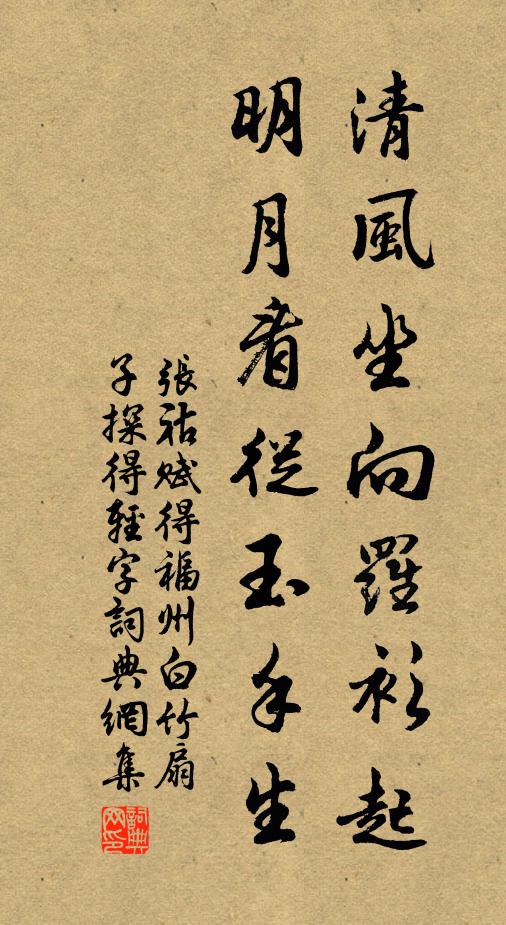 清風坐向羅衫起
明月看從玉手生
張祜賦得福州白竹扇
子探得輕字詞典網集
詞典网印